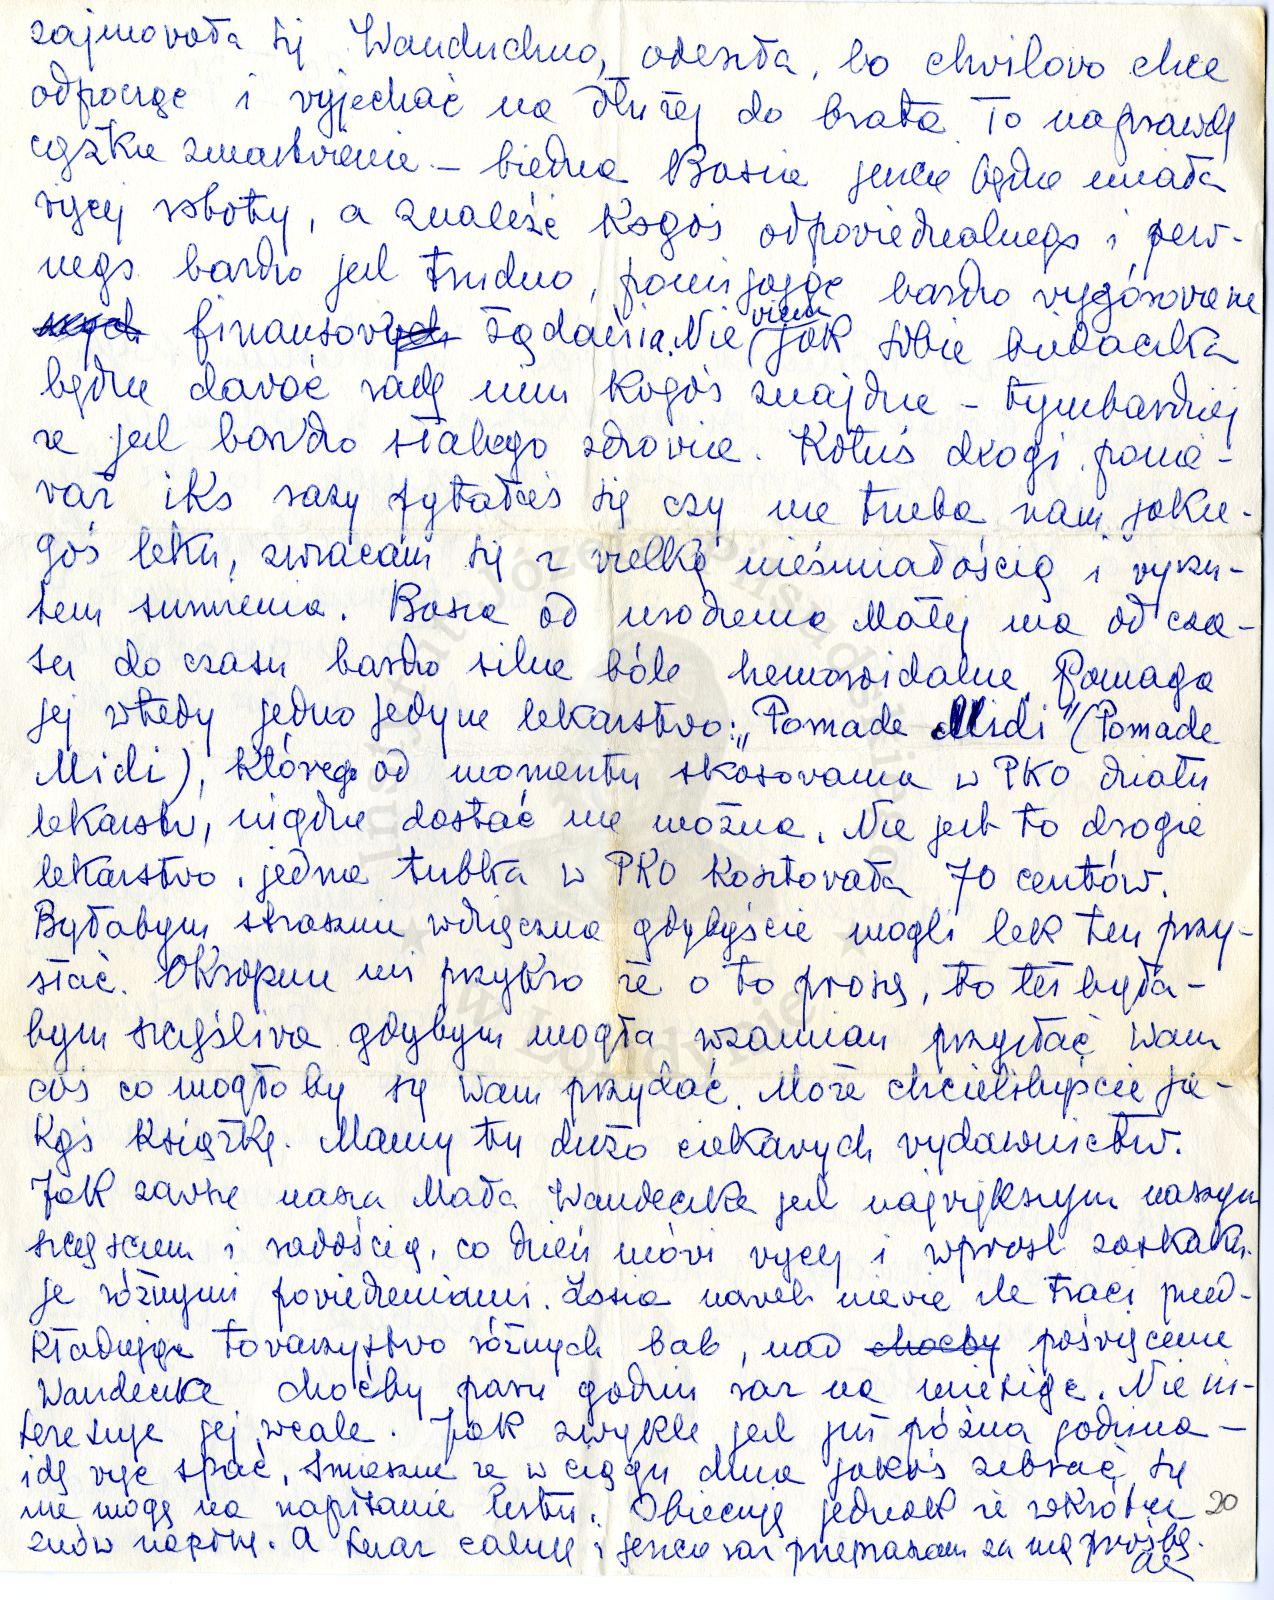 zajmowała się Wanduchną, odeszła, bo chwilowo chce
odpocząć i wyjechać na dłużej do brata. To naprawdę
ciężkie zmartwienie – biedna Basia jeszcze będzie miała
więcej roboty, a znaleźć kogoś odpowiedzialnego i pew-
nego bardzo jest trudno, pomijając bardzo wygórowane
finansowe żądania. Nie wiem jak sobie biedaczka
będzie dawać radę nim kogoś znajdzie – tymbardziej
że jest bardzo słabego zdrowia. Kotuś drogi, ponie-
waż iks razy pytałeś się czy nie trzeba nam jakie-
goś leku, zwracam się z wielką nieśmiałością i wyrzu-
tem sumienia. Basia od urodzenia Małej ma od cza-
su do czasu bardzo silne bóle hemoroidalne. Pomaga
jej wtedy jedno jedyne lekarstwo: „Pomade Midi" (Pomade
Midi), którego od momentu skasowania w PKO działu
lekarstw, nigdzie dostać nie można. Nie jest to drogie
lekarstwo, jedna tubka w PKO kosztowała 70 centów.
Byłabym strasznie wdzięczna gdybyście mogli lek ten przy-
słać. Okropnie mi przykro że o to proszę, to też była-
bym szczęśliwa gdybym mogła wzamian przysłać Wam
coś co mogłoby się Wam przydać. Może chcielibyście ja-
kąś książkę. Mamy tu dużo ciekawych wydawnictw.
Jak zawsze nasza Mała Wandeczka jest największym naszym
szczęściem i radością, co dzień mówi więcej i wprost zaskaku-
je różnymi powiedzeniami. Zosia nawet nie wie ile traci przed-
kładając towarzystwo różnych bab, nad choćby poświęcenie
Wandeczce choćby parę godzin raz na miesiąc. Nie in-
teresuje jej wcale. Jak zwykle jest już późna godzina –
idę więc spać, śmieszne że w ciągu dnia jakoś zebrać się
nie mogę na napisanie listu. Obiecuję jednak że wkrótce
znów napiszę. A teraz całuję i jeszcze raz przepraszam za mą prośbę.
20